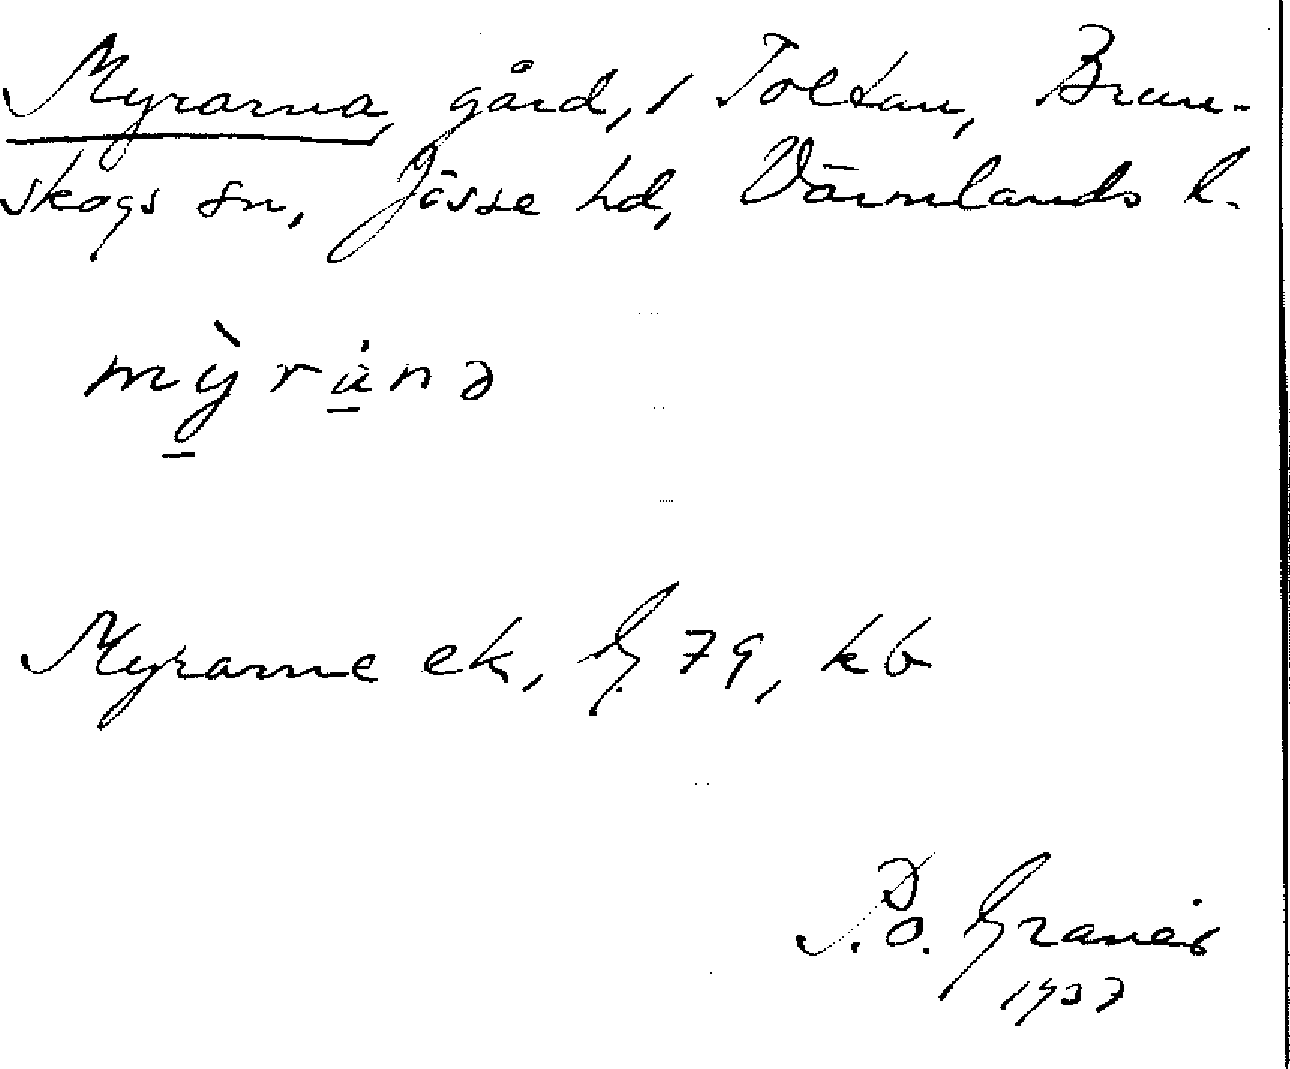 Myrarna, gård, i Toltan, Brun-
skogs sn, Jösse hd, Värmlands l.
mỳrȧnə
Myrarne ek, G. 79, kb
P.O. Granér
1937